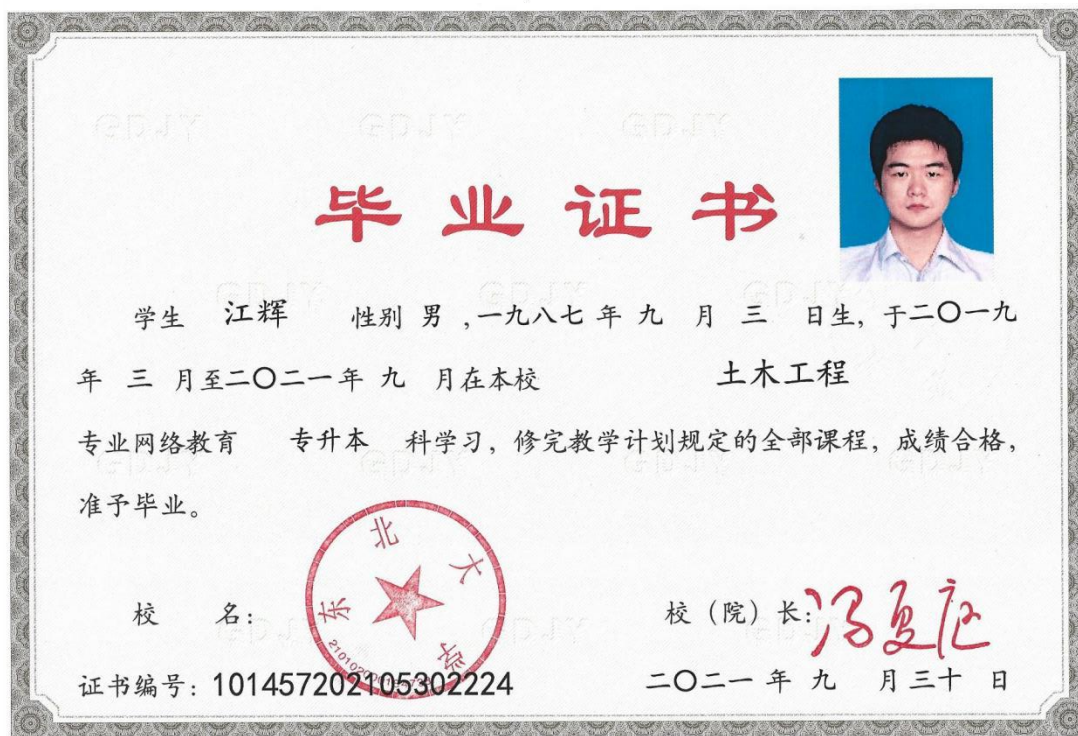 毕业证书
学生 江辉 性别 男 ,一九八七 年 九 月 三 日生, 于二〇一九
年 三 月至二〇二一年 九 月在本校 土木工程
专业网络教育 专升本 科学习, 修完教学计划规定的全部课程, 成绩合格,
准予毕业。
东北大学
校 名:
校（院）长: 冯夏庭
证书编号: 101457202105302224
二〇二一 年 九 月三十 日